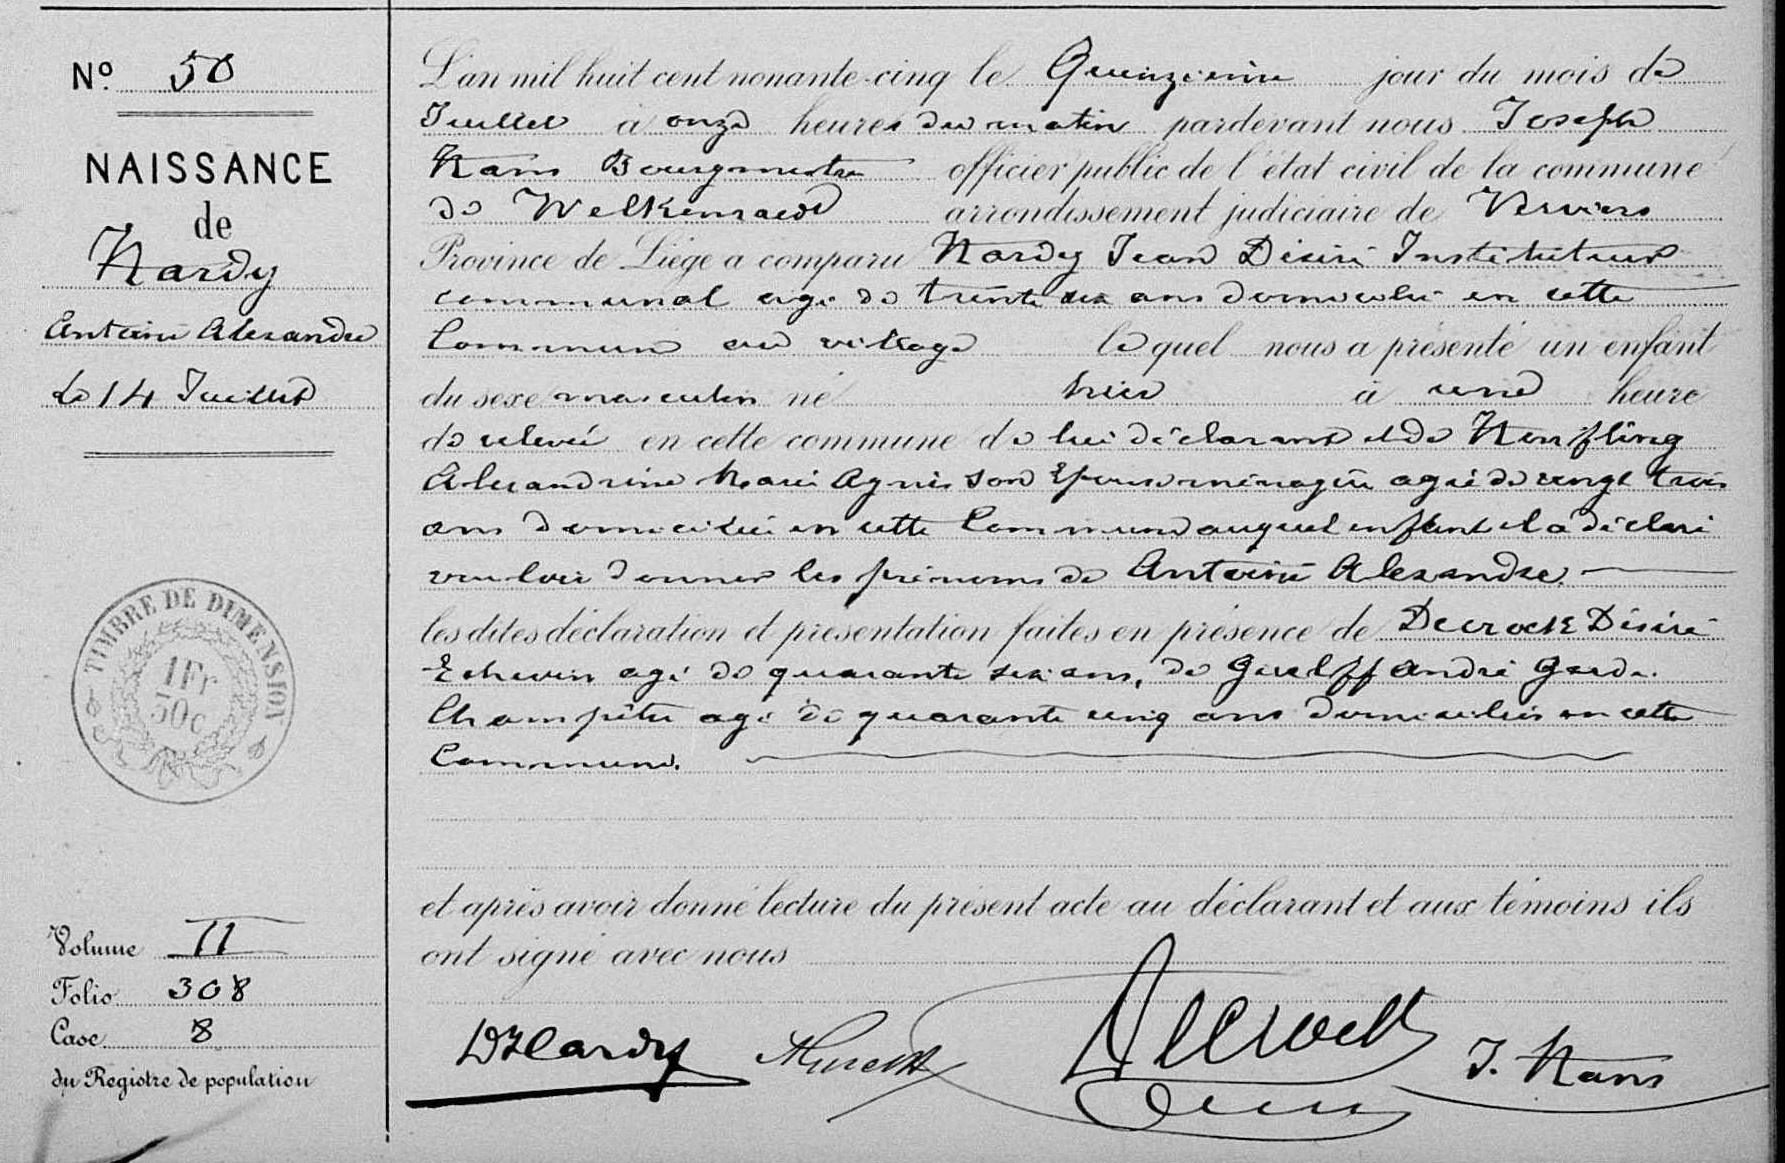 Nº 50
NAISSANCE
de
Hardy
Antoine Alexandre
Le 14 Juillet
TIMBRE DE DIMENSION
1Fr
50c
Volume II
Folio 308
Case 8
du Registre de population
L'an mil huit cent nonante-cinq le Quinzième jour du mois de
Juillet à onze heures du matin pardevant nous Joseph
Hans Bourgmestre officier public de l'état civil de la commune
de Welkenraedt arrondissement judiciaire de Verviers
Province de Liége a comparu Hardy Jean Désiré Instituteur
communal agé de trente six ans domicilié en cette
Commune au village lequel nous a présenté un enfant
du sexe masculin né hier à une heure
de relevée en cette commune de lui déclarant et de Henfling
Alexandrine Marie Agnès son Epouse ménagère agée de vingt trois
ans domiciliée en cette Commune auquel enfant il a déclaré
vouloir donner les prénoms de Antoine Alexandre.
les dites déclaration et présentation faites en présence de Decrock Désiré
Echevin agé de quarante six ans, de Guelff André Garde
Champêtre agé de quarante cinq ans domiciliés en cette
Commune.
et après avoir donné lecture du présent acte au déclarant et aux témoins ils
ont signé avec nous
DHardy
Decrock
J. Hans